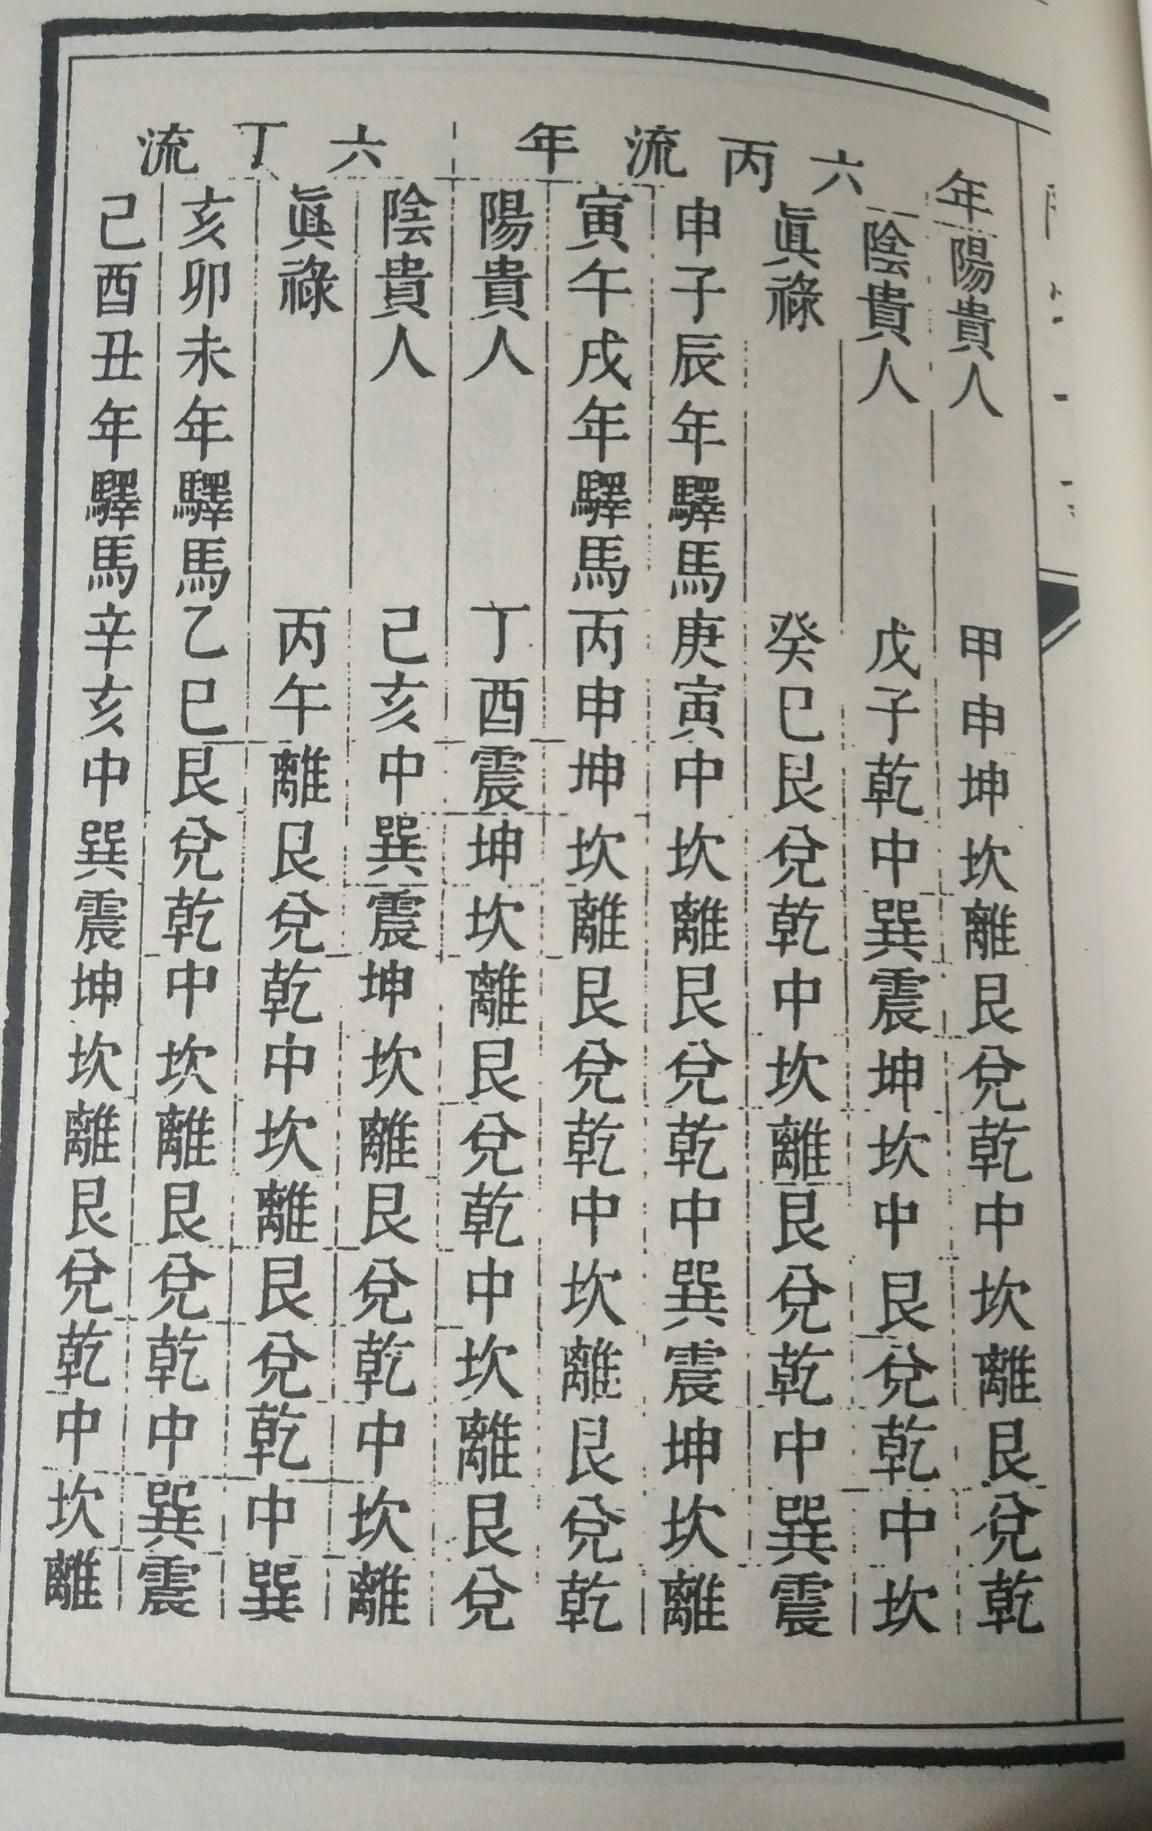 年
陽貴人 甲申坤坎離艮兌乾中坎離艮兌乾
陰貴人 戊子乾中巽震坤坎中艮兌乾中坎
六丙流年
眞祿 癸巳艮兌乾中坎離艮兌乾中巽震
申子辰年驛馬庚寅中坎離艮兌乾中巽震坤坎離
寅午戌年驛馬丙申坤坎離艮兌乾中坎離艮兌乾
陽貴人 丁酉震坤坎離艮兌乾中坎離艮兌
六丁流
陰貴人 己亥中巽震坤坎離艮兌乾中坎離
眞祿 丙午離艮兌乾中坎離艮兌乾中巽
亥卯未年驛馬乙巳艮兌乾中坎離艮兌乾中巽震
己酉丑年驛馬辛亥中巽震坤坎離艮兌乾中坎離